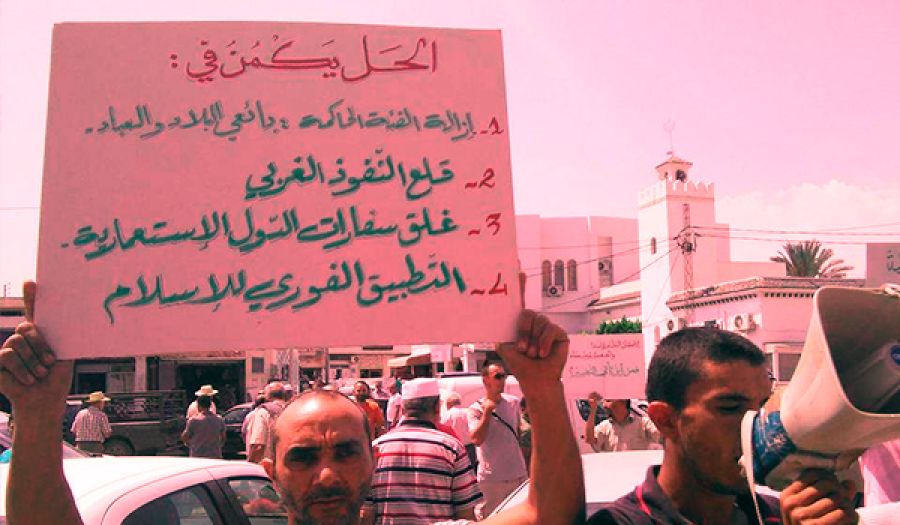 الحَل يَكْمُنُ في :
1- إزالة الفئة الحاكمة : بائعي البلاد والعباد.
2- قلع النّفوذ الغربي
3- غلق سفارات الدّول الإستعمارية.
4- التّطبيق الفوري للإسلام